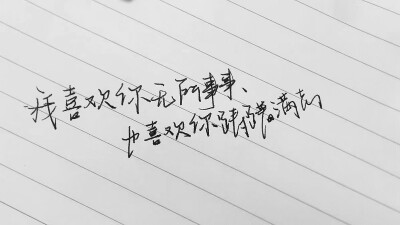 我喜欢你无所事事、
也喜欢你踌躇满志